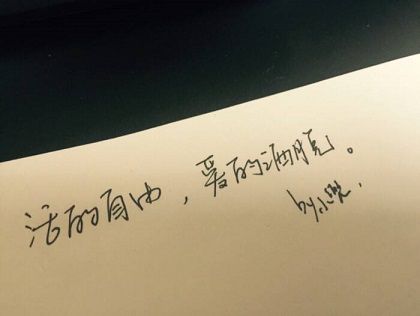 活的自由，爱的洒脱。
by.小